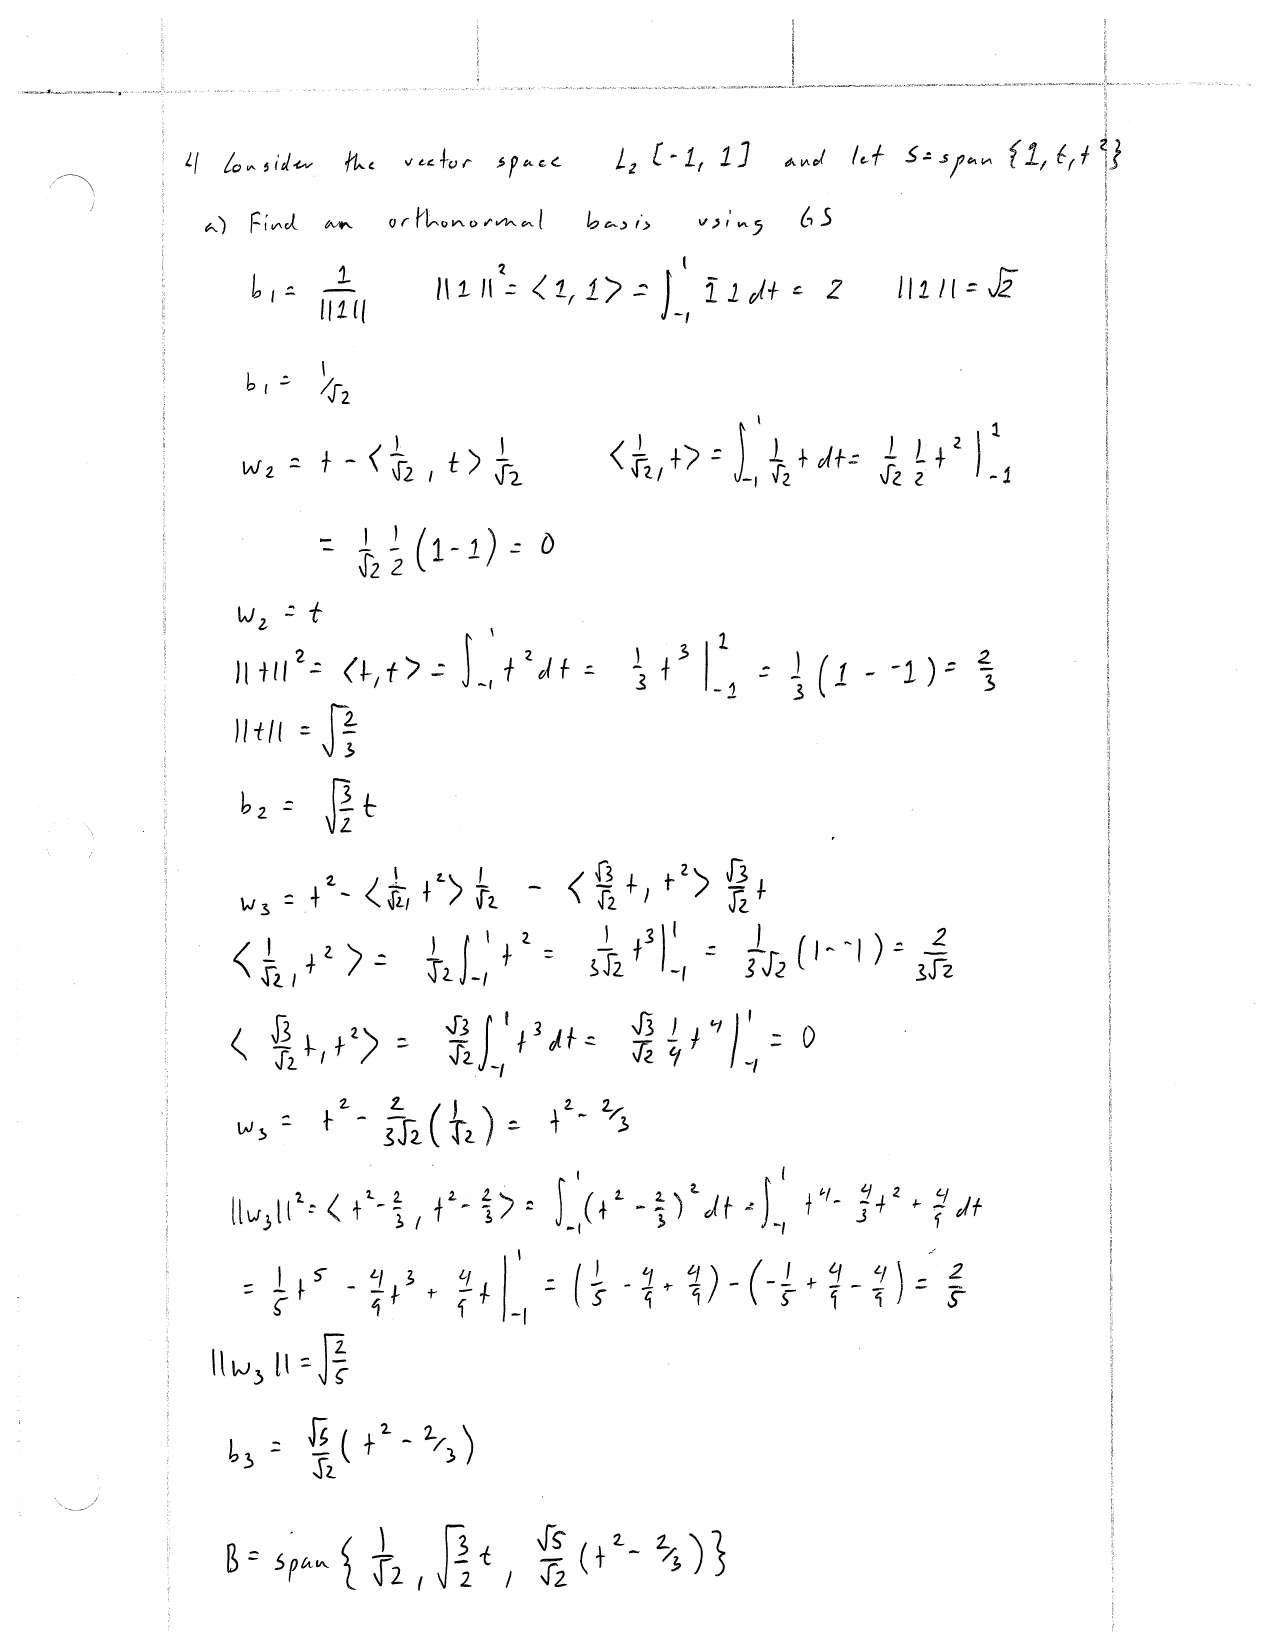 4) Consider the vector space L₂ [-1, 1] and let S = span {1, t, t²}
a) Find an orthonormal basis using GS
b₁ = 1/||1|| ||1||² = <1, 1> = ∫₋₁¹ 1̄ 1 dt = 2 ||1|| = √2
b₁ = 1/√2
w₂ = t - <1/√2, t> 1/√2 <1/√2, t> = ∫₋₁¹ 1/√2 t dt = 1/√2 1/2 t² |₋₁¹
= 1/√2 1/2 (1-1) = 0
w₂ = t
||t||² = <t, t> = ∫₋₁¹ t² dt = 1/3 t³ |₋₁¹ = 1/3 (1 - -1) = 2/3
||t|| = √(2/3)
b₂ = √(3/2) t
w₃ = t² - <1/√2, t²> 1/√2 - <√3/√2 t, t²> √3/√2 t
<1/√2, t²> = 1/√2 ∫₋₁¹ t² = 1/(3√2) t³ |₋₁¹ = 1/(3√2) (1 - -1) = 2/(3√2)
<√3/√2 t, t²> = √3/√2 ∫₋₁¹ t³ dt = √3/√2 1/4 t⁴ |₋₁¹ = 0
w₃ = t² - 2/(3√2) (1/√2) = t² - 2/3
||w₃||² = <t² - 2/3, t² - 2/3> = ∫₋₁¹ (t² - 2/3)² dt = ∫₋₁¹ t⁴ - 4/3 t² + 4/9 dt
= 1/5 t⁵ - 4/9 t³ + 4/9 t |₋₁¹ = (1/5 - 4/9 + 4/9) - (-1/5 + 4/9 - 4/9) = 2/5
||w₃|| = √(2/5)
b₃ = √5/√2 (t² - 2/3)
B = span {1/√2, √(3/2) t, √5/√2 (t² - 2/3)}